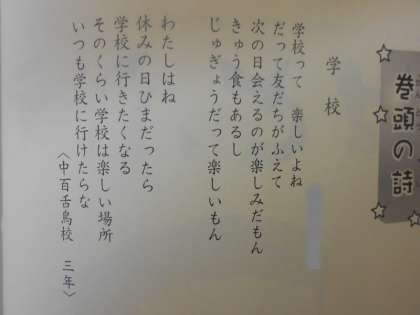 巻頭の詩
学校
学校って　楽しいよね
だって友だちがふえて
次の日会えるのが楽しみだもん
きゅう食もあるし
じゅぎょうだって楽しいもん
わたしはね
休みの日ひまだったら
学校に行きたくなる
そのくらい学校は楽しい場所
いつも学校に行けたらな
〈中百舌鳥校　三年〉